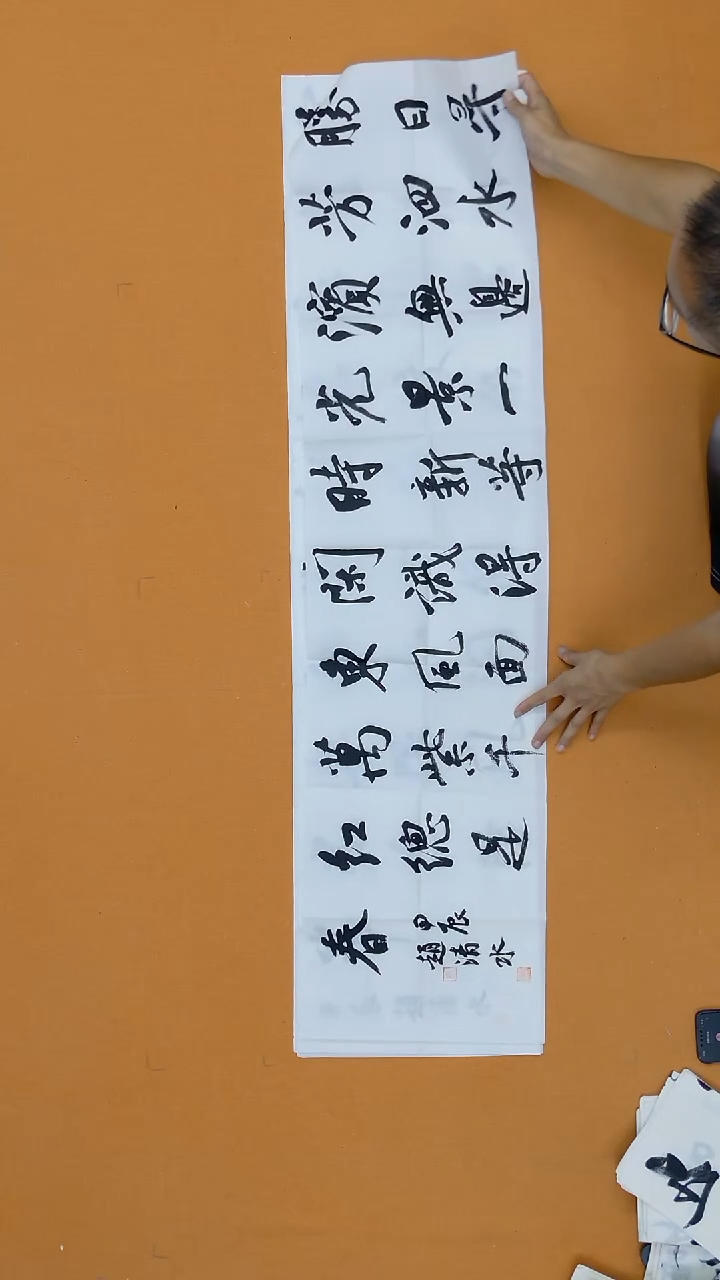 勝日尋
芳泗水
濱無邊
光景一
時新等
閑識得
東風面
萬紫千
紅總是
春
甲辰
趙清水